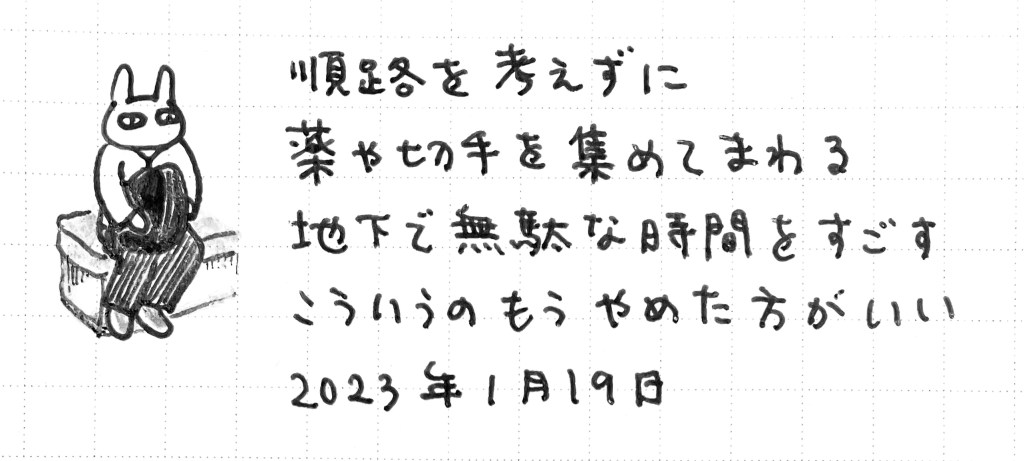 順路を考えずに
薬や切手を集めてまわる
地下で無駄な時間をすごす
こういうのもうやめた方がいい
2023年1月19日